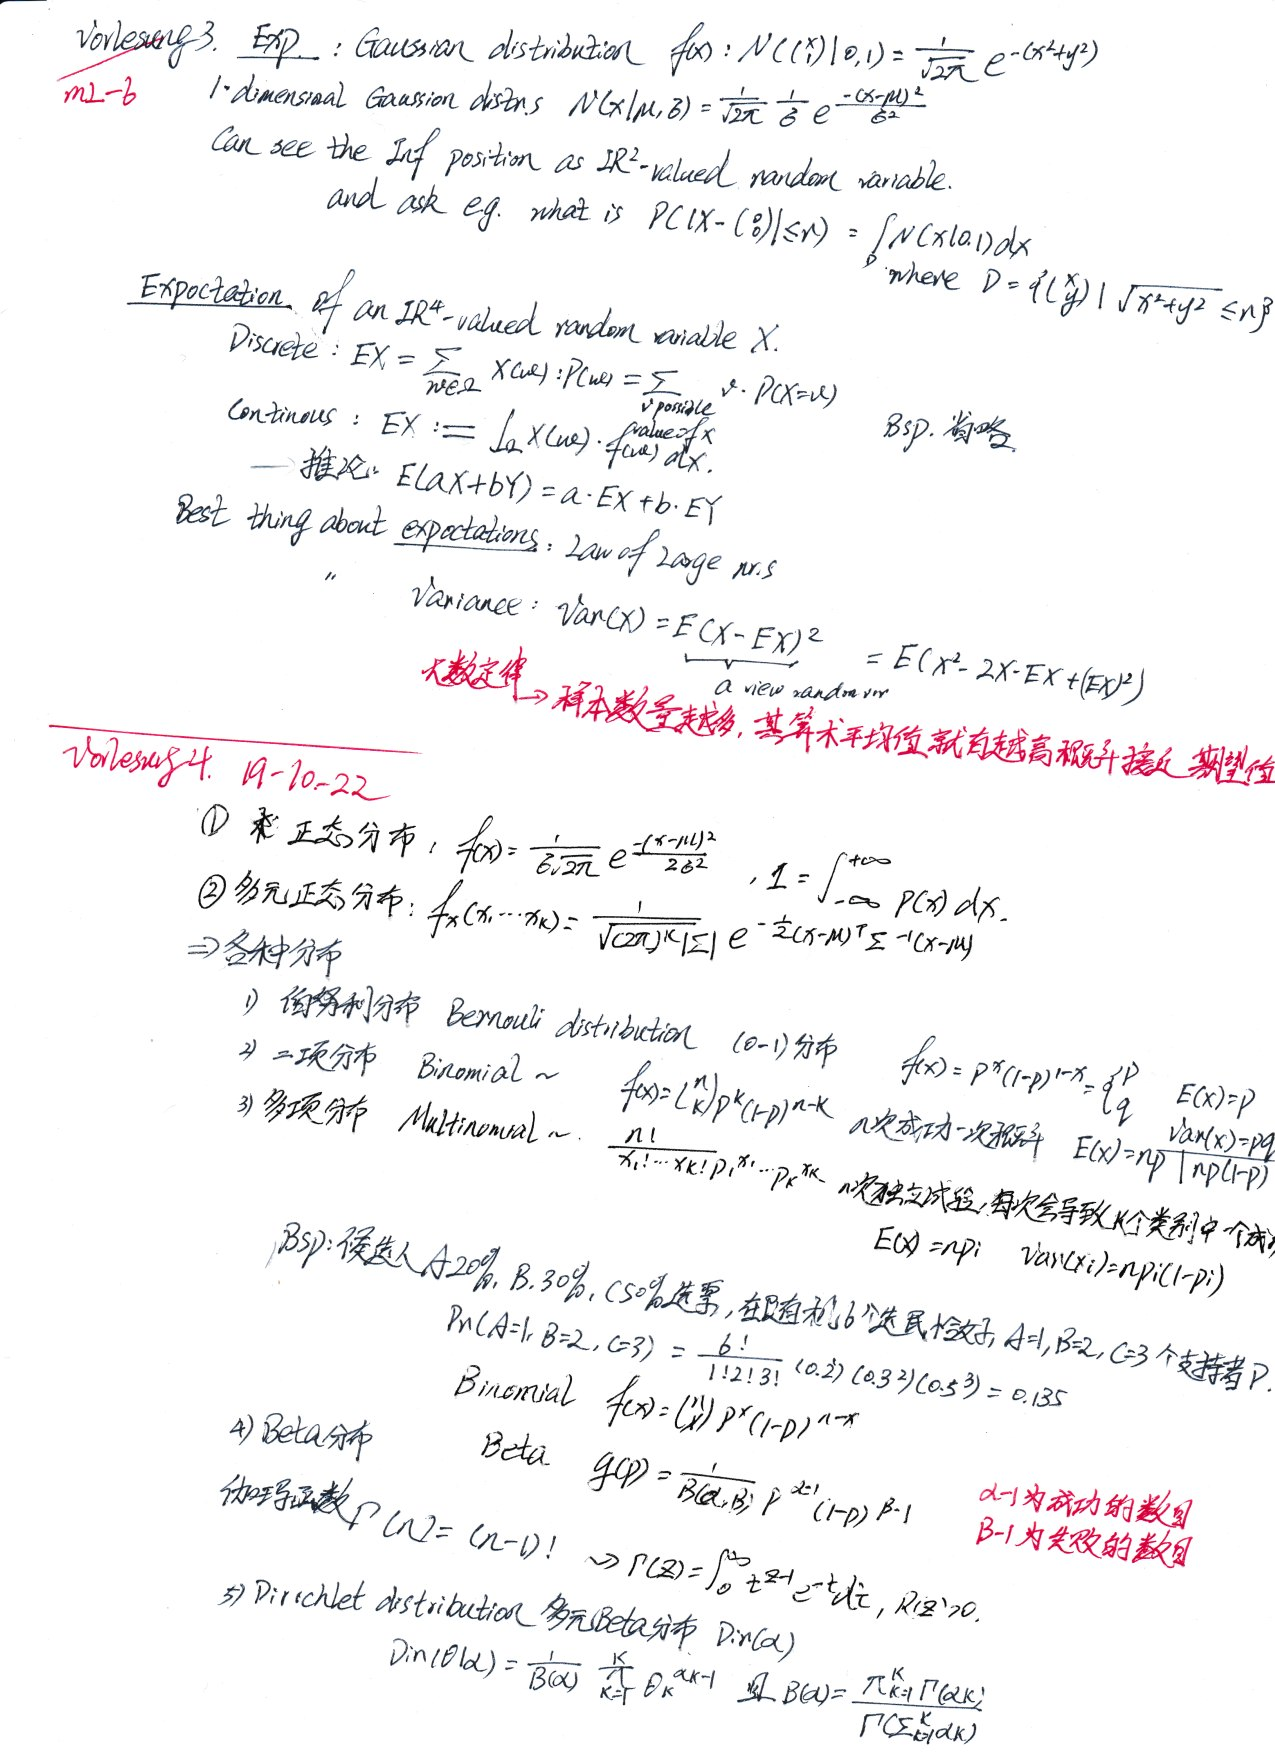 Vorlesung 3. Exp. : Gaussian distribution f(x) : N((x i)|0,1) = 1/√2π e^-(x²+y²)
ML-6
1-dimensional Gaussion distr.s N(x|μ, б) = 1/√2π 1/б e^-(x-μ)²/б²
Can see the Inf position as IR²-valued random variable.
and ask e.g. what is P(|X-(0 0)|≤r) = ∫_D N(x|0.1)dx
where D = {(x y) | √x²+y² ≤ r}
Expoctation of an IR⁴-valued random variable X.
Discrete : EX = Σ_{w∈Ω} X(w) : P(w) = Σ_{v possible value of x} v · P(X=v)
Continous : EX := ∫_Ω X(w) · f(w) dx.
Bsp. 省略
— 推论: E(aX+bY) = a·EX + b·EY
Best thing about expoctations : Law of Large nr.s
" Variance : Var(X) = E(X-EX)² = E(X² - 2X·EX + (EX)²)
a view random var
大数定律 → 样本数量越多, 其算术平均值就有越高概率接近期望值
Vorlesung 4. 19-10-22
① 正态分布, f(x) = 1/б√2π e^-(x-μ)²/2б² , 1 = ∫_-∞^+∞ P(x) dx.
② 多元正态分布: f_x(x₁…x_K) = 1/√(2π)^K|Σ| e^-½(x-μ)^T Σ^-1(x-μ)
⇒ 各种分布
1) 伯努利分布 Bernouli distribution (0-1)分布 f(x) = p^x(1-p)^1-x = {p q E(x)=p Var(x)=pq
2) 二项分布 Binomial ~ f(x) = (n K) p^k(1-p)^n-k n次成功一次概率 E(x)=np | np(1-p)
3) 多项分布 Multinomial ~. n!/x₁!…x_K! p₁^x₁…p_K^x_K n次独立试验, 每次会导致K个类别中一个成
E(x) = npi Var(xi)=npi(1-pi)
Bsp: 候选人A20%, B.30%, C50%选票, 在随机6个选民恰好, A=1, B=2, C=3个支持者P.
Pr(A=1, B=2, C=3) = 6!/1!2!3! (0.2¹)(0.3²)(0.5³) = 0.135
Binomial f(x) = (n x) p^x (1-p)^n-x
4) Beta分布 Beta g(p) = 1/B(α,β) p^α-1 (1-p)^β-1
α-1为成功的数目
β-1为失败的数目
伽玛函数 Γ(n) = (n-1)! ⇝ Γ(z) = ∫_0^∞ t^z-1 e^-t dt, R(z)>0.
5) Dirichlet distribution 多元Beta分布 Dir(α)
Dir(θ|α) = 1/B(α) π_{K=1}^K θ_K^αK-1 且 B(α) = π_{K=1}^K Γ(αK)/Γ(Σ_{K=1}^K αK)